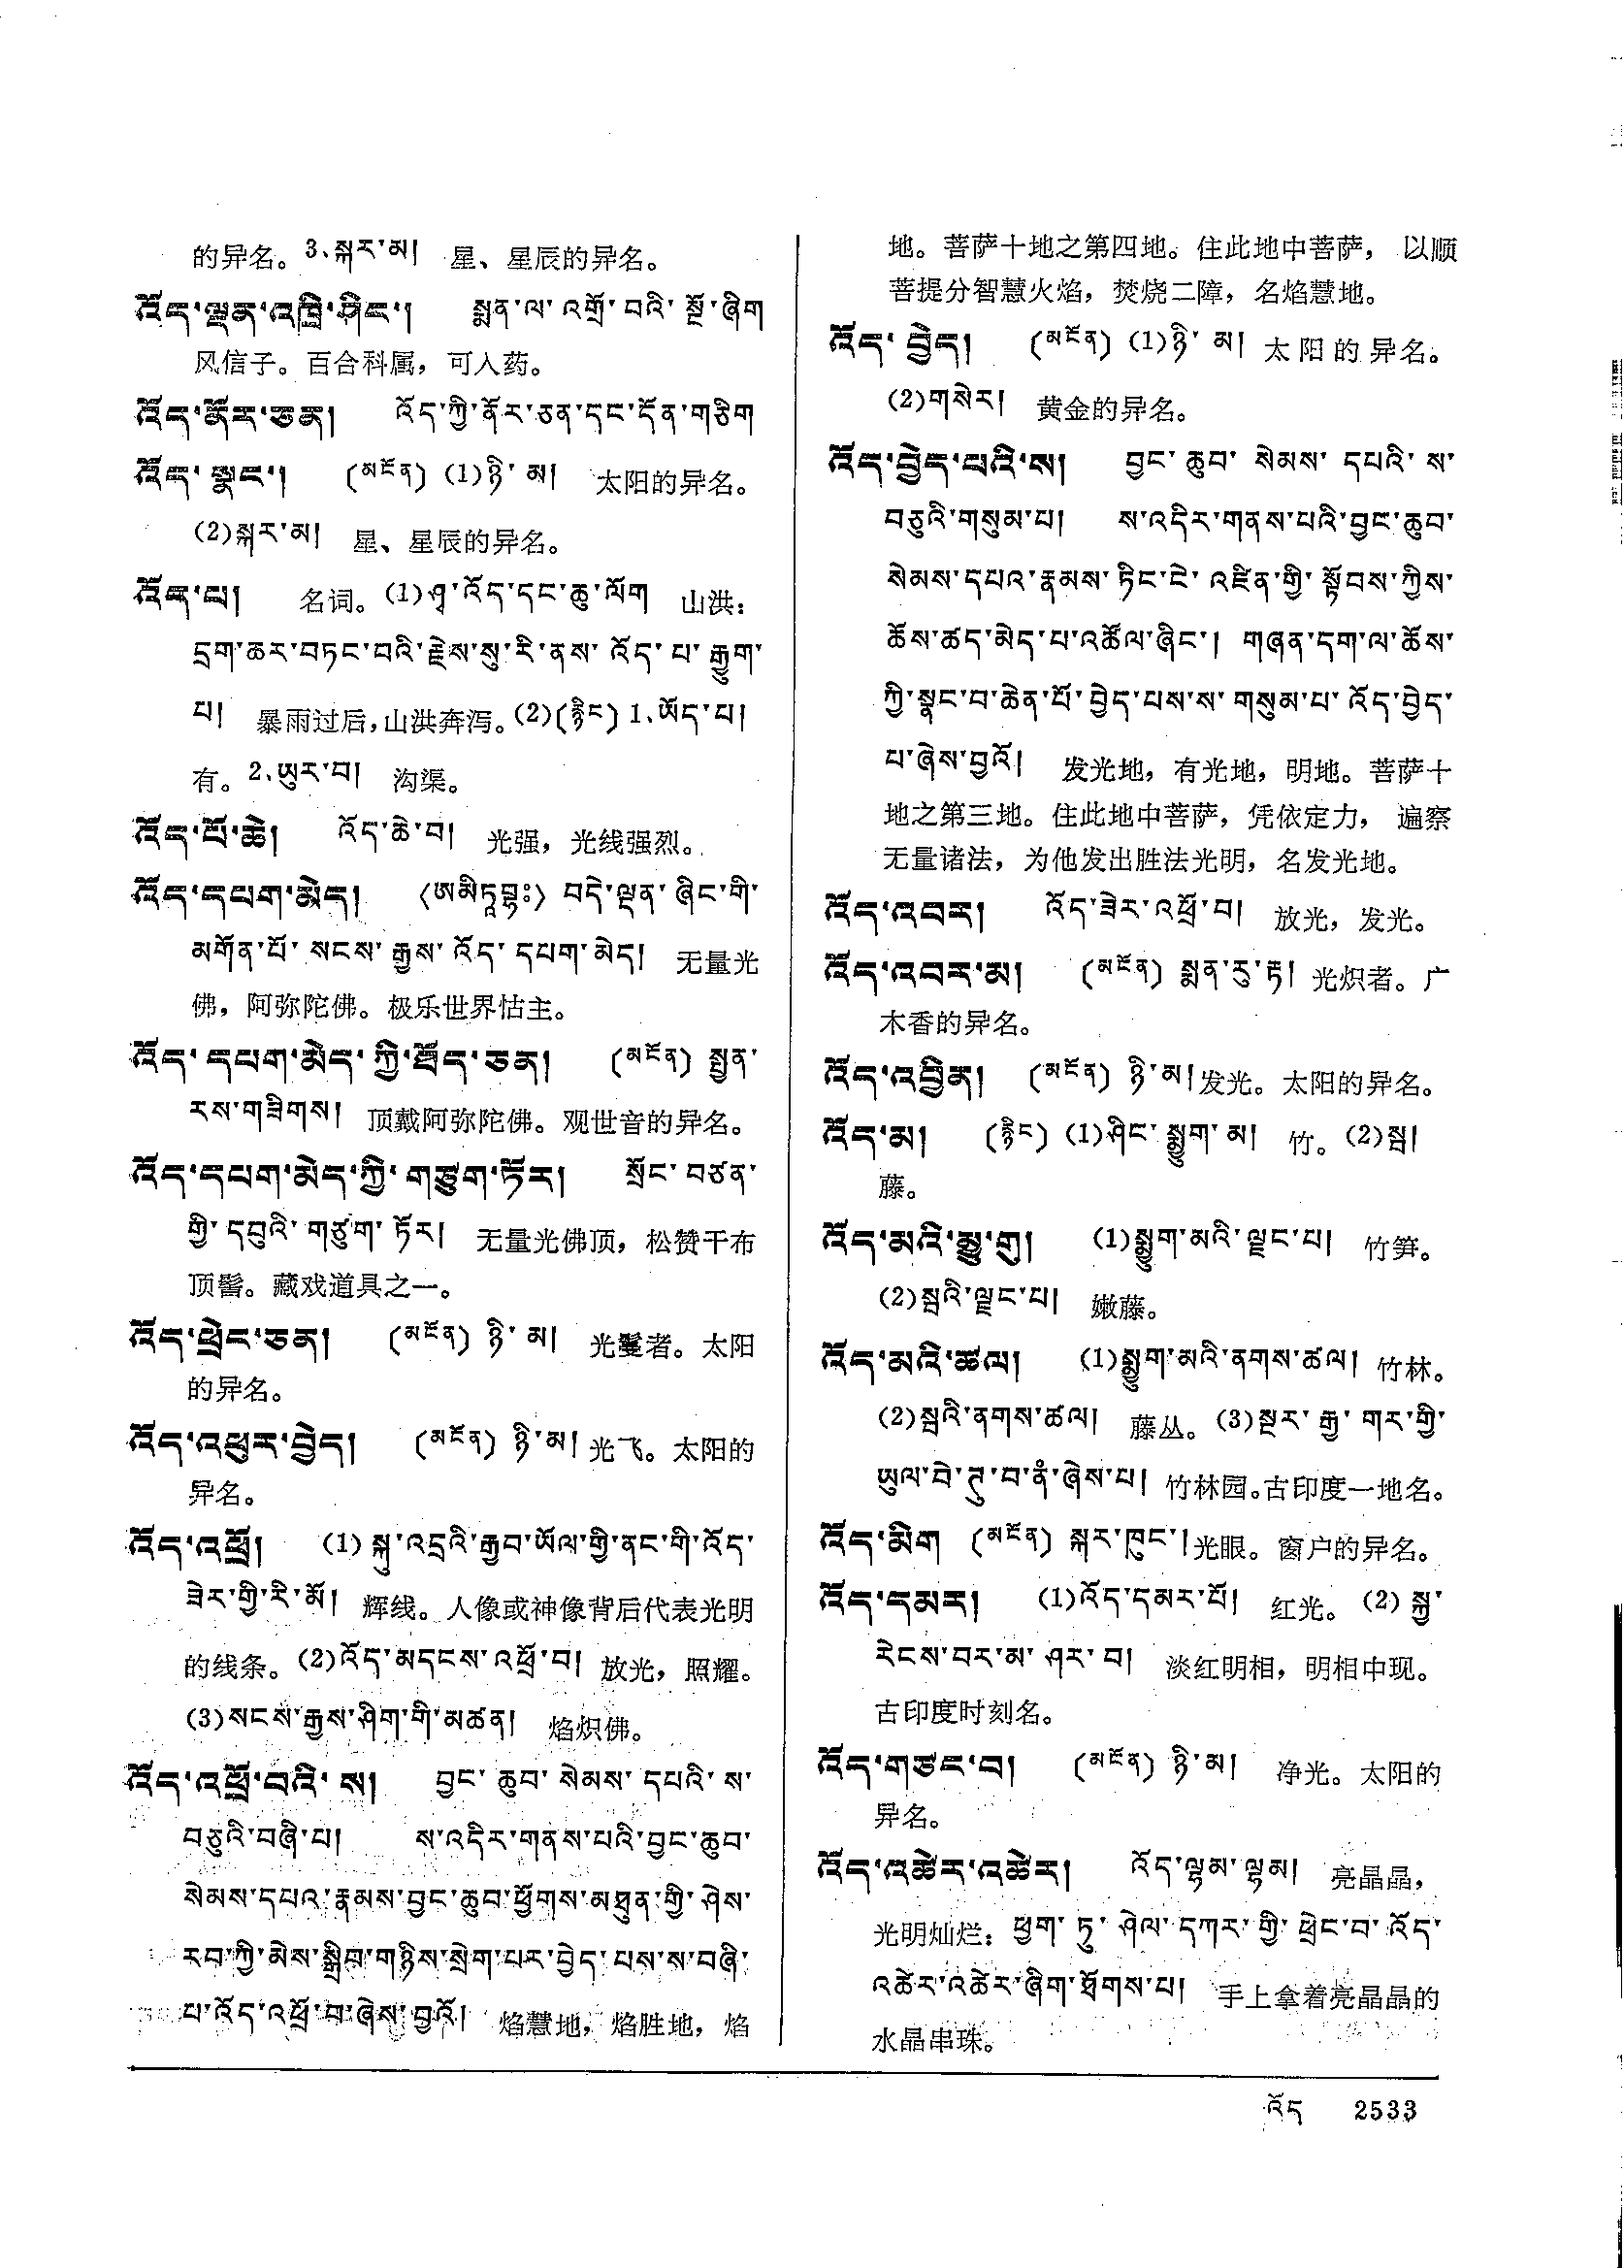 的异名。3、སྐར་མ། 星、星辰的异名。
འོད་ལྡན་འཁྲི་ཤིང་། སྨན་ལ་འགྲོ་བའི་སྔོ་ཞིག
风信子。百合科属，可入药。
འོད་ནོར་ཅན། འོད་ཀྱི་ནོར་ཅན་དང་དོན་གཅིག
འོད་སྣང་། (མངོན) (1)ཉི་མ། 太阳的异名。
(2)སྐར་མ། 星、星辰的异名。
འོད་པ། 名词。(1)ཤྭ་འོད་དང་ཆུ་ལོག 山洪：
དྲག་ཆར་བཏང་བའི་རྗེས་སུ་རི་ནས་འོད་པ་རྒྱུག་
པ། 暴雨过后，山洪奔泻。(2)(རྙིང) 1、ཡོད་པ།
有。2、ཡུར་བ། 沟渠。
འོད་པོ་ཆེ། འོད་ཆེ་བ། 光强，光线强烈。
འོད་དཔག་མེད། 〈ཨམིཏཱབྷཿ〉 བདེ་ལྡན་ཞིང་གི་
མགོན་པོ་སངས་རྒྱས་འོད་དཔག་མེད། 无量光
佛，阿弥陀佛。极乐世界怙主。
འོད་དཔག་མེད་ཀྱི་ཐོད་ཅན། (མངོན) སྤྱན་
རས་གཟིགས། 顶戴阿弥陀佛。观世音的异名。
འོད་དཔག་མེད་ཀྱི་གཙུག་ཏོར། སྲོང་བཙན་
གྱི་དབུའི་གཙུག་ཏོར། 无量光佛顶，松赞干布
顶髻。藏戏道具之一。
འོད་ཕྲེང་ཅན། (མངོན) ཉི་མ། 光鬘者。太阳
的异名。
འོད་འཕུར་བྱེད། (མངོན) ཉི་མ། 光飞。太阳的
异名。
འོད་འཕྲོ། (1) སྐུ་འདྲའི་རྒྱབ་ཡོལ་གྱི་ནང་གི་འོད་
ཟེར་གྱི་རི་མོ། 辉线。人像或神像背后代表光明
的线条。(2)འོད་མདངས་འཕྲོ་བ། 放光，照耀。
(3)སངས་རྒྱས་ཤིག་གི་མཚན། 焰炽佛。
འོད་འཕྲོ་བའི་ས། བྱང་ཆུབ་སེམས་དཔའི་ས་
བཅུའི་བཞི་པ། ས་འདིར་གནས་པའི་བྱང་ཆུབ་
སེམས་དཔའ་རྣམས་བྱང་ཆུབ་ཕྱོགས་མཐུན་གྱི་ཤེས་
རབ་ཀྱི་མེས་སྒྲིབ་གཉིས་སྲེག་པར་བྱེད་པས་ས་བཞི་
པ་འོད་འཕྲོ་བ་ཞེས་བྱའོ། 焰慧地，焰胜地，焰
地。菩萨十地之第四地。住此地中菩萨，以顺
菩提分智慧火焰，焚烧二障，名焰慧地。
འོད་བྱེད། (མངོན) (1)ཉི་མ། 太阳的异名。
(2)གསེར། 黄金的异名。
འོད་བྱེད་པའི་ས། བྱང་ཆུབ་སེམས་དཔའི་ས་
བཅུའི་གསུམ་པ། ས་འདིར་གནས་པའི་བྱང་ཆུབ་
སེམས་དཔའ་རྣམས་ཏིང་ངེ་འཛིན་གྱི་སྟོབས་ཀྱིས་
ཆོས་ཚད་མེད་པ་འཚོལ་ཞིང་། གཞན་དག་ལ་ཆོས་
ཀྱི་སྣང་བ་ཆེན་པོ་བྱེད་པས་ས་གསུམ་པ་འོད་བྱེད་
པ་ཞེས་བྱའོ། 发光地，有光地，明地。菩萨十
地之第三地。住此地中菩萨，凭依定力，遍察
无量诸法，为他发出胜法光明，名发光地。
འོད་འབར། འོད་ཟེར་འཕྲོ་བ། 放光，发光。
འོད་འབར་མ། (མངོན) སྨན་རུ་རྟ། 光炽者。广
木香的异名。
འོད་འབྱིན། (མངོན) ཉི་མ། 发光。太阳的异名。
འོད་མ། (རྙིང) (1)ཤིང་སྨྱུག་མ། 竹。(2)སྦ།
藤。
འོད་མའི་མྱུ་གུ། (1)སྨྱུག་མའི་ལྗང་པ། 竹笋。
(2)སྦའི་ལྗང་པ། 嫩藤。
འོད་མའི་ཚལ། (1)སྨྱུག་མའི་ནགས་ཚལ། 竹林。
(2)སྦའི་ནགས་ཚལ། 藤丛。(3)སྔར་རྒྱ་གར་གྱི་
ཡུལ་བེ་ཎུ་བ་ནཾ་ཞེས་པ། 竹林园。古印度一地名。
འོད་མིག (མངོན) སྐར་ཁུང་། 光眼。窗户的异名。
འོད་དམར། (1)འོད་དམར་པོ། 红光。(2) སྐྱ་
རེངས་བར་མ་ཤར་བ། 淡红明相，明相中现。
古印度时刻名。
འོད་གཙང་བ། (མངོན) ཉི་མ། 净光。太阳的
异名。
འོད་འཚེར་འཚེར། འོད་ལྷམ་ལྷམ། 亮晶晶，
光明灿烂：ཕྱག་ཏུ་ཤེལ་དཀར་གྱི་ཕྲེང་བ་འོད་
འཚེར་འཚེར་ཞིག་ཐོགས་པ། 手上拿着亮晶晶的
水晶串珠。
འོད 2533